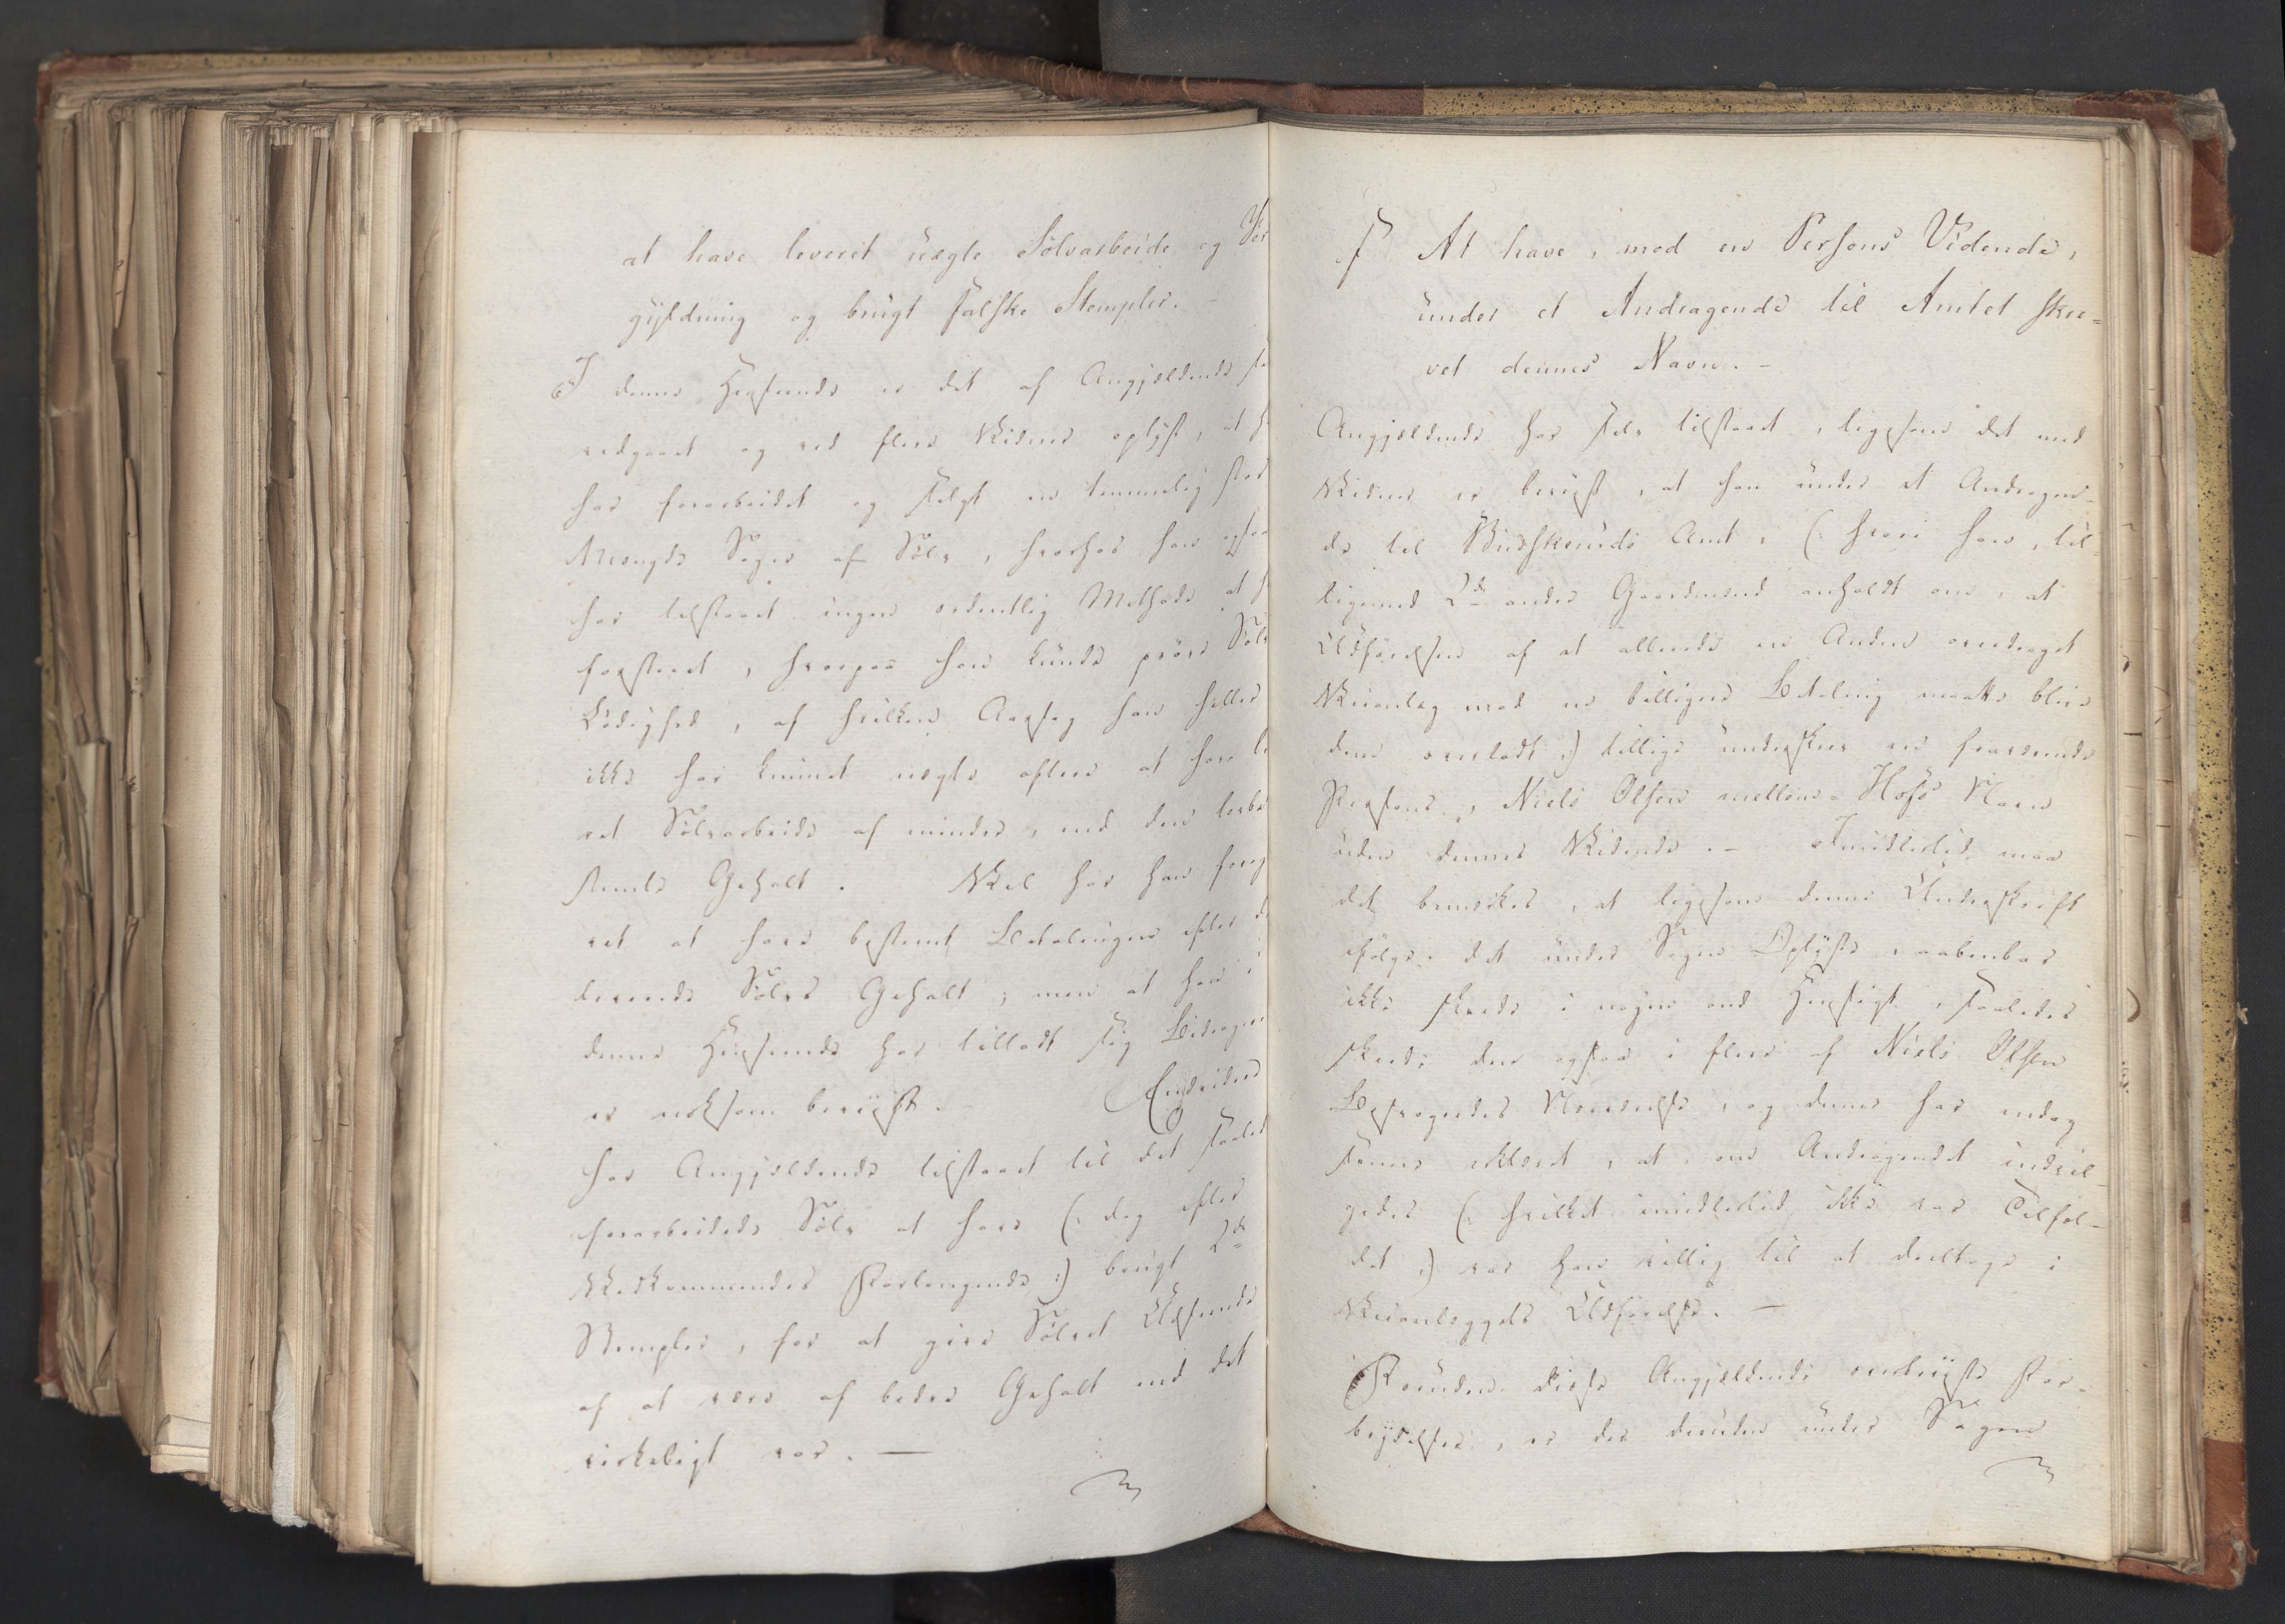 at have leveret uægte Sölvarbeide og For
gyldning og brugt falske Stempler. -
I denne Henseende er det af Angjældende
vedgaaet og ved flere Vidner oplyst, at
har forarbeidet og solgt en temmelig stor
Mængde Sager af Sölv, hvorhos han ogsaa
har tilstaaet ingen ordentlig Methode at
forstaaet, hvorpaa han kunde pröve Sölv
Lödighed, af hvilken Aarsag han heller
ikke har kunnet nægte oftere at have le
ret Sölvarbeide af mindre, end den lovbe
stemte Gehalt. Vel har han foreg
vet at have bestemt Betalingen efter d
leverede Sölvs Gehalt; men at han i
denne Henseende har tilladt sig Bedragerie
er noksom beviist. Endvidere
har Angjældende tilstaaet til det saaled
forarbeidede Sölv at have (: dog efter
Vedkommendes Forlangende :) brugt 2de
Stempler, for at give Sölvet Udseende
af at være af bedre Gehalt end det
virkeligt var. —
f. At have, mod en Persons Vidende,
under et Andragende til Amtet skre=
vet dennes Navn. -
Angjældende har selv tilstaaet, ligesom det med
Vidner er beviist, at han under et Andragen-
de til Buskeruds Amt, (: hvori han, til-
ligemed 2de andre Gaardmænd anholdt om, at
Udförelsen af et allerede en Anden overdraget
Veianlæg mod en billigere Betaling maatte blive
dem overladt :) tillige underskrev en fraværende
Persons, Niels Olsen mellem-Hofs Navn
uden dennes Vidende. - Imidlertid maa
det bemærkes, at ligesom denne Underskrift
ifölge det under Sagen Oplyste, aabenbar
ikke skeede i nogen ond Hensigt, saaledes
skeede den ogsaa i flere af Niels Olsen
Besvogredes Nærværelse, og denne har endog
senere erklæret, at, om Andragendet indvil-
gedes (: hvilket imidlertid ikke var Tilfæl-
det :) var han villig til at deeltage i
Veianlæggets Udförelse. —
Foruden disse Angjældende overbeviiste For-
brydelser, er der desuden under Sagen